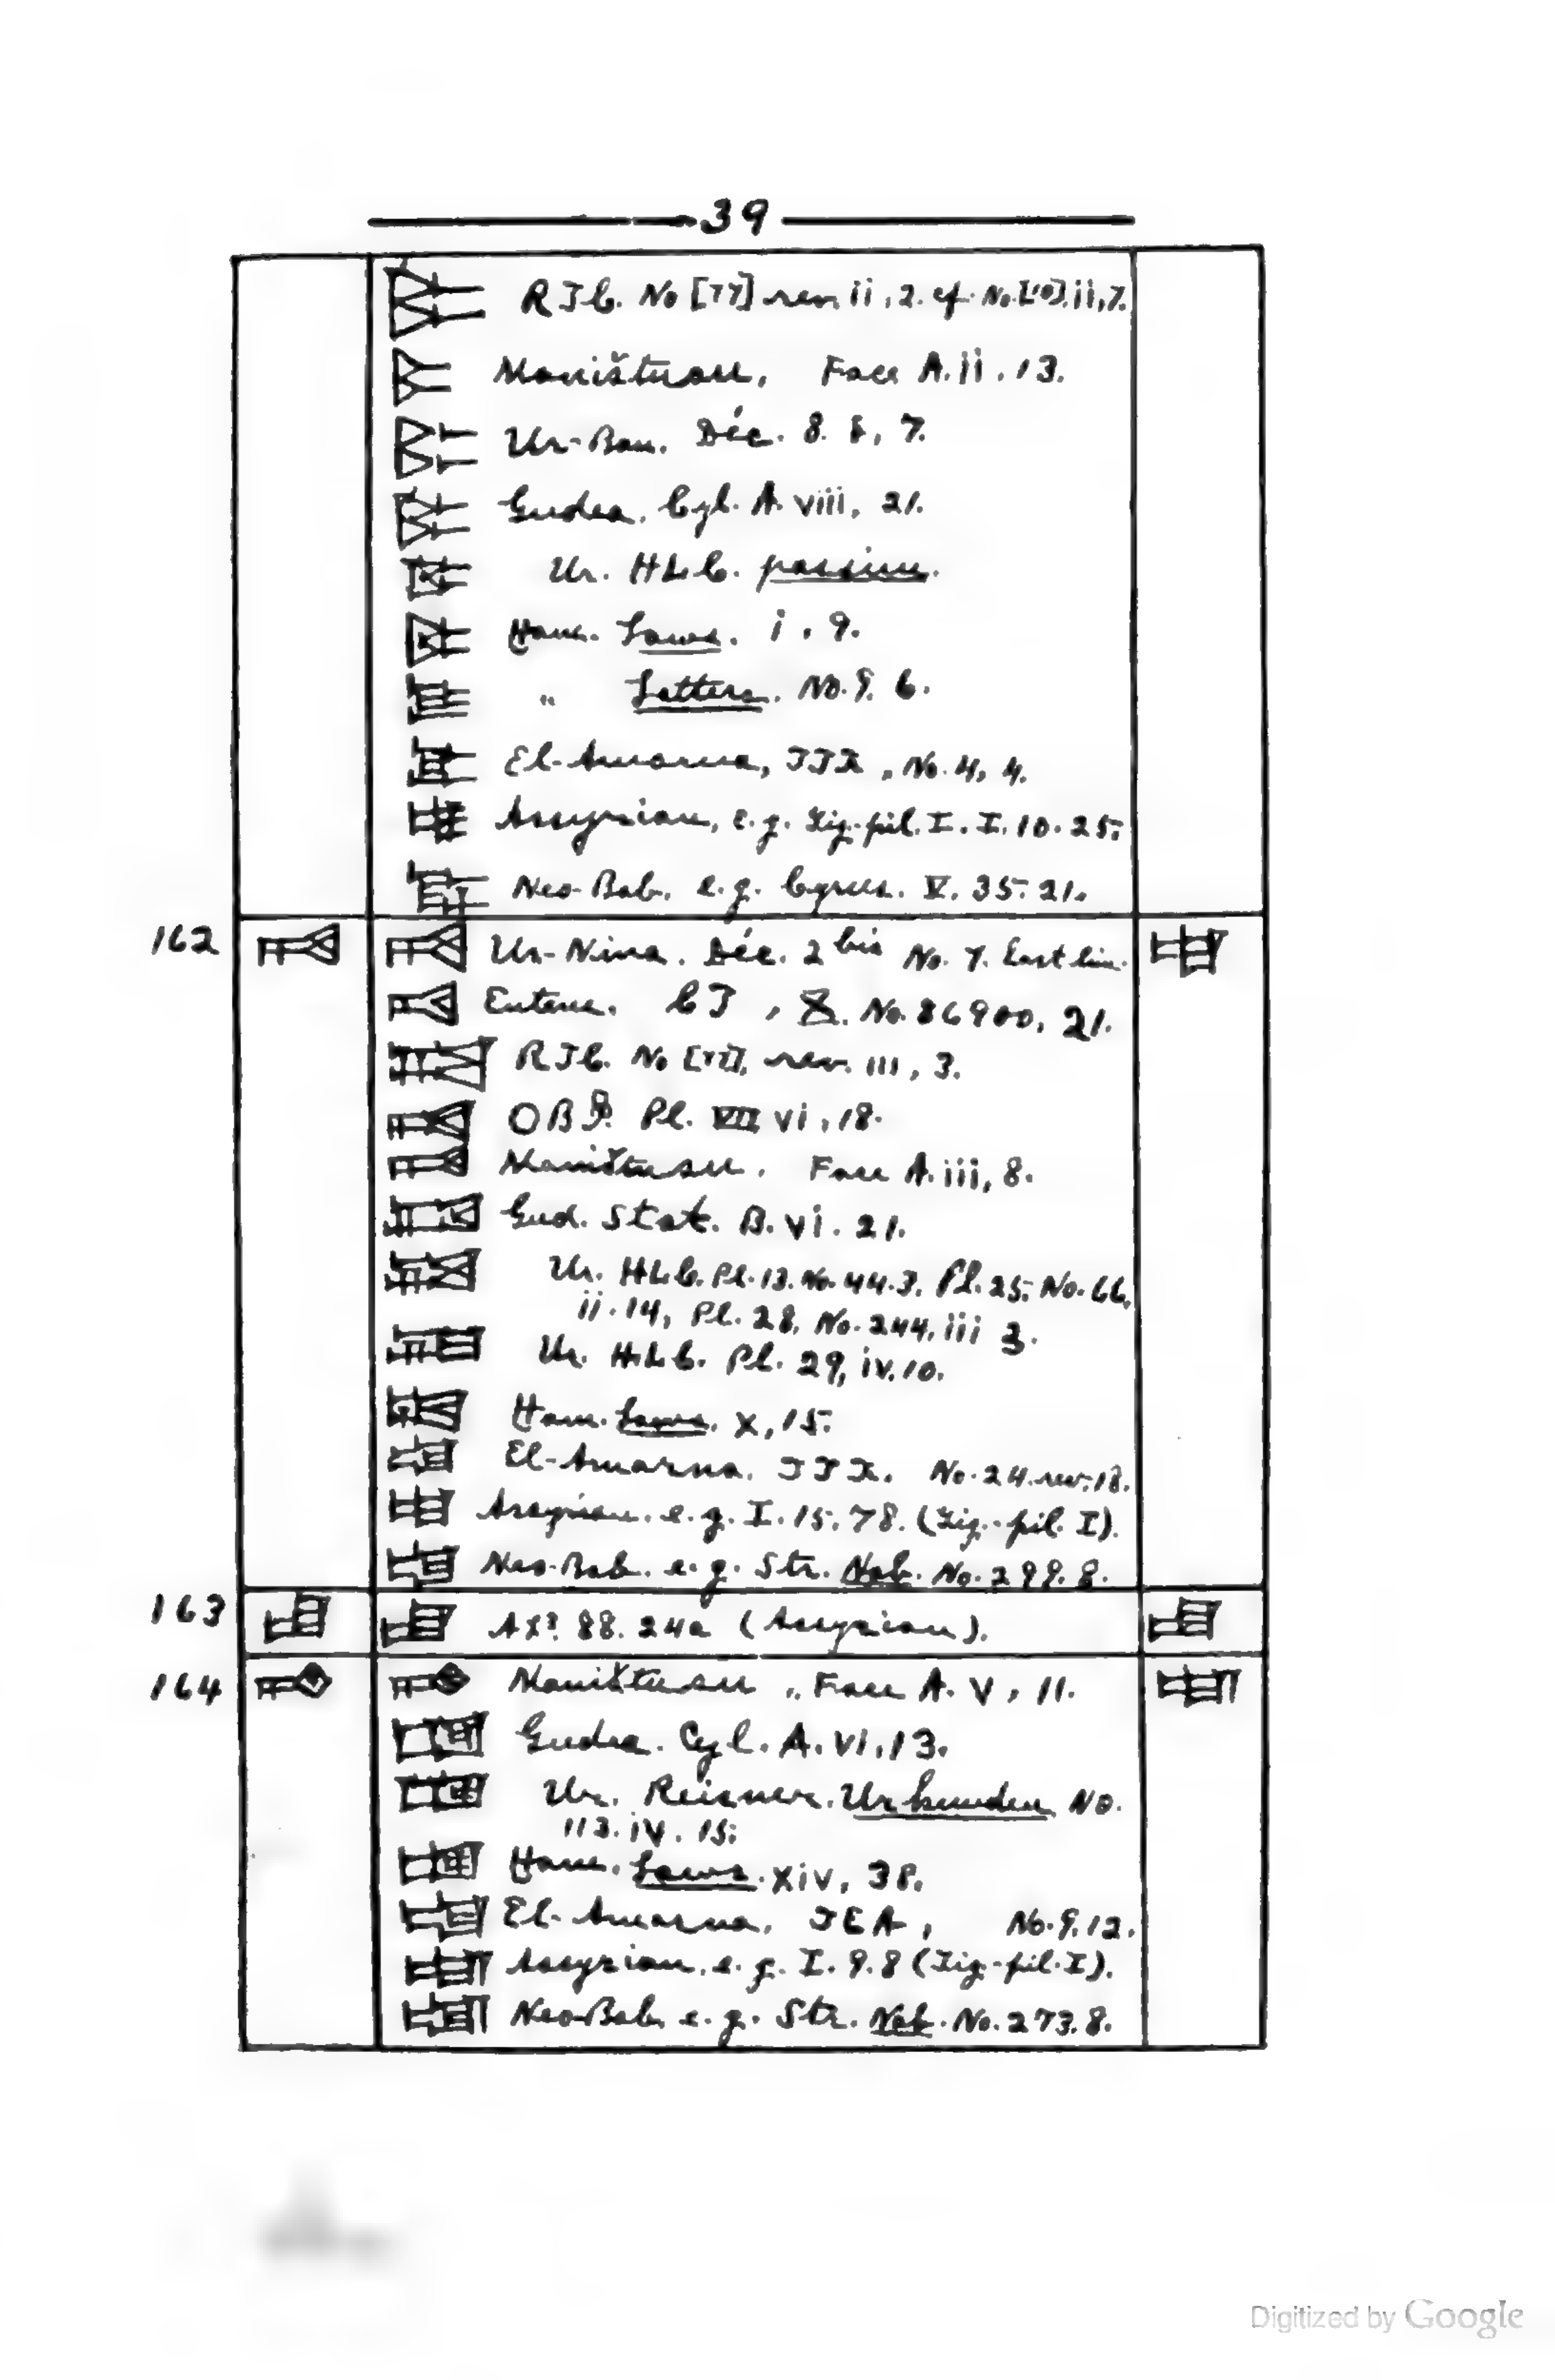 39
RTC. No [77] rev. ii, 2. cf. No. ii, 7.
Maništusu, Face A. ii. 13.
Ur-Bau. Déc. 8. 7.
Gudea, Cyl. A. viii, 21.
Ur. HLC. passim.
Ham. Laws. i, 9.
" Letters. No. 9. 6.
El-Amarna, No. 4, 4.
Assyrian, e.g. Tig.-pil. I. I. 10. 25.
Neo-Bab. e.g. Cyrus. V. 35. 21.
162 Ur-Nina. Déc. 2 bis No. 7. last line.
Enteme. CT, X. No. 86900, 21.
RTC. No rev. III, 3.
Pl. VII vi, 18.
Maništusu. Face A. iii, 8.
Gud. Stat. B. vi. 21.
Ur. HLC. Pl. 13. No. 44. 3. Pl. 25. No. 66.
ii. 14, Pl. 28, No. 244. iii 3.
Ur. HLC. Pl. 29, iv. 10.
Ham. Laws. X, 15.
El-Amarna. No. 24. rev. 18.
Assyrian. e.g. I. 15. 78. (Tig.-pil. I).
Neo-Bab. e.g. Str. Nab. No. 299. 8.
163 88. 24a (Assyrian).
164 Maništusu, Face A. V, 11.
Gudea. Cyl. A. vi. 13.
Ur. Reisner. Urkunden No.
113. iv. 15.
Ham. Laws. xiv, 38.
El-Amarna, TEA, No. 9. 12.
Assyrian. e.g. I. 9. 8 (Tig.-pil. I).
Neo-Bab. e.g. Str. Nab. No. 273. 8.
Digitized by Google